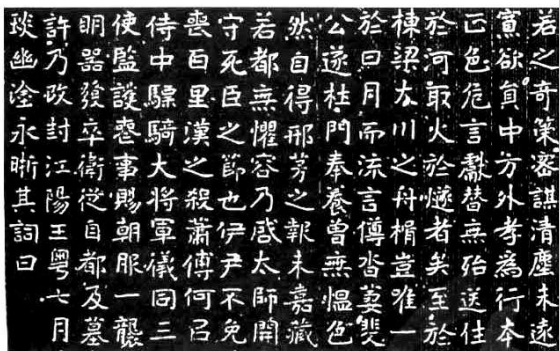 若之奇策密謀清塵未遠
寅欲負中方外孝為行本
正色危言獻替無殆送往
於河取火於燧者矣至於
棟梁大川之舟楫豈唯一
於日月而流言傳沓萋斐
公遂杜門奉養曾無慍色
然自得邢茅之報未嘉藏
若都無懼容乃啟太師開
守死臣之節也伊尹不免
喪百里漢之殺蕭傅何㠯
侍中驃騎大將軍儀同三
使監護喪事賜朝服一襲
明器發卒衛從自都及墓
許乃改封江陽王粵七月
琰幽塗永晰其詞曰